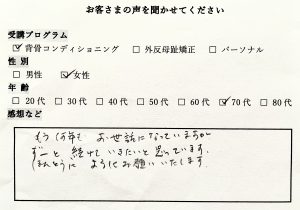 お客さまの声を聞かせてください
受講プログラム
☑ 背骨コンディショニング □ 外反母趾矯正 □ パーソナル
性 別
□ 男性 ☑ 女性
年 齢
□ 20代 □ 30代 □ 40代 □ 50代 □ 60代 ☑ 70代 □ 80代
感想など
もう 何年も お世話になっていますが
ずーと 続けていきたいと思っています。
ほんとうに よろしくお願いいたします。